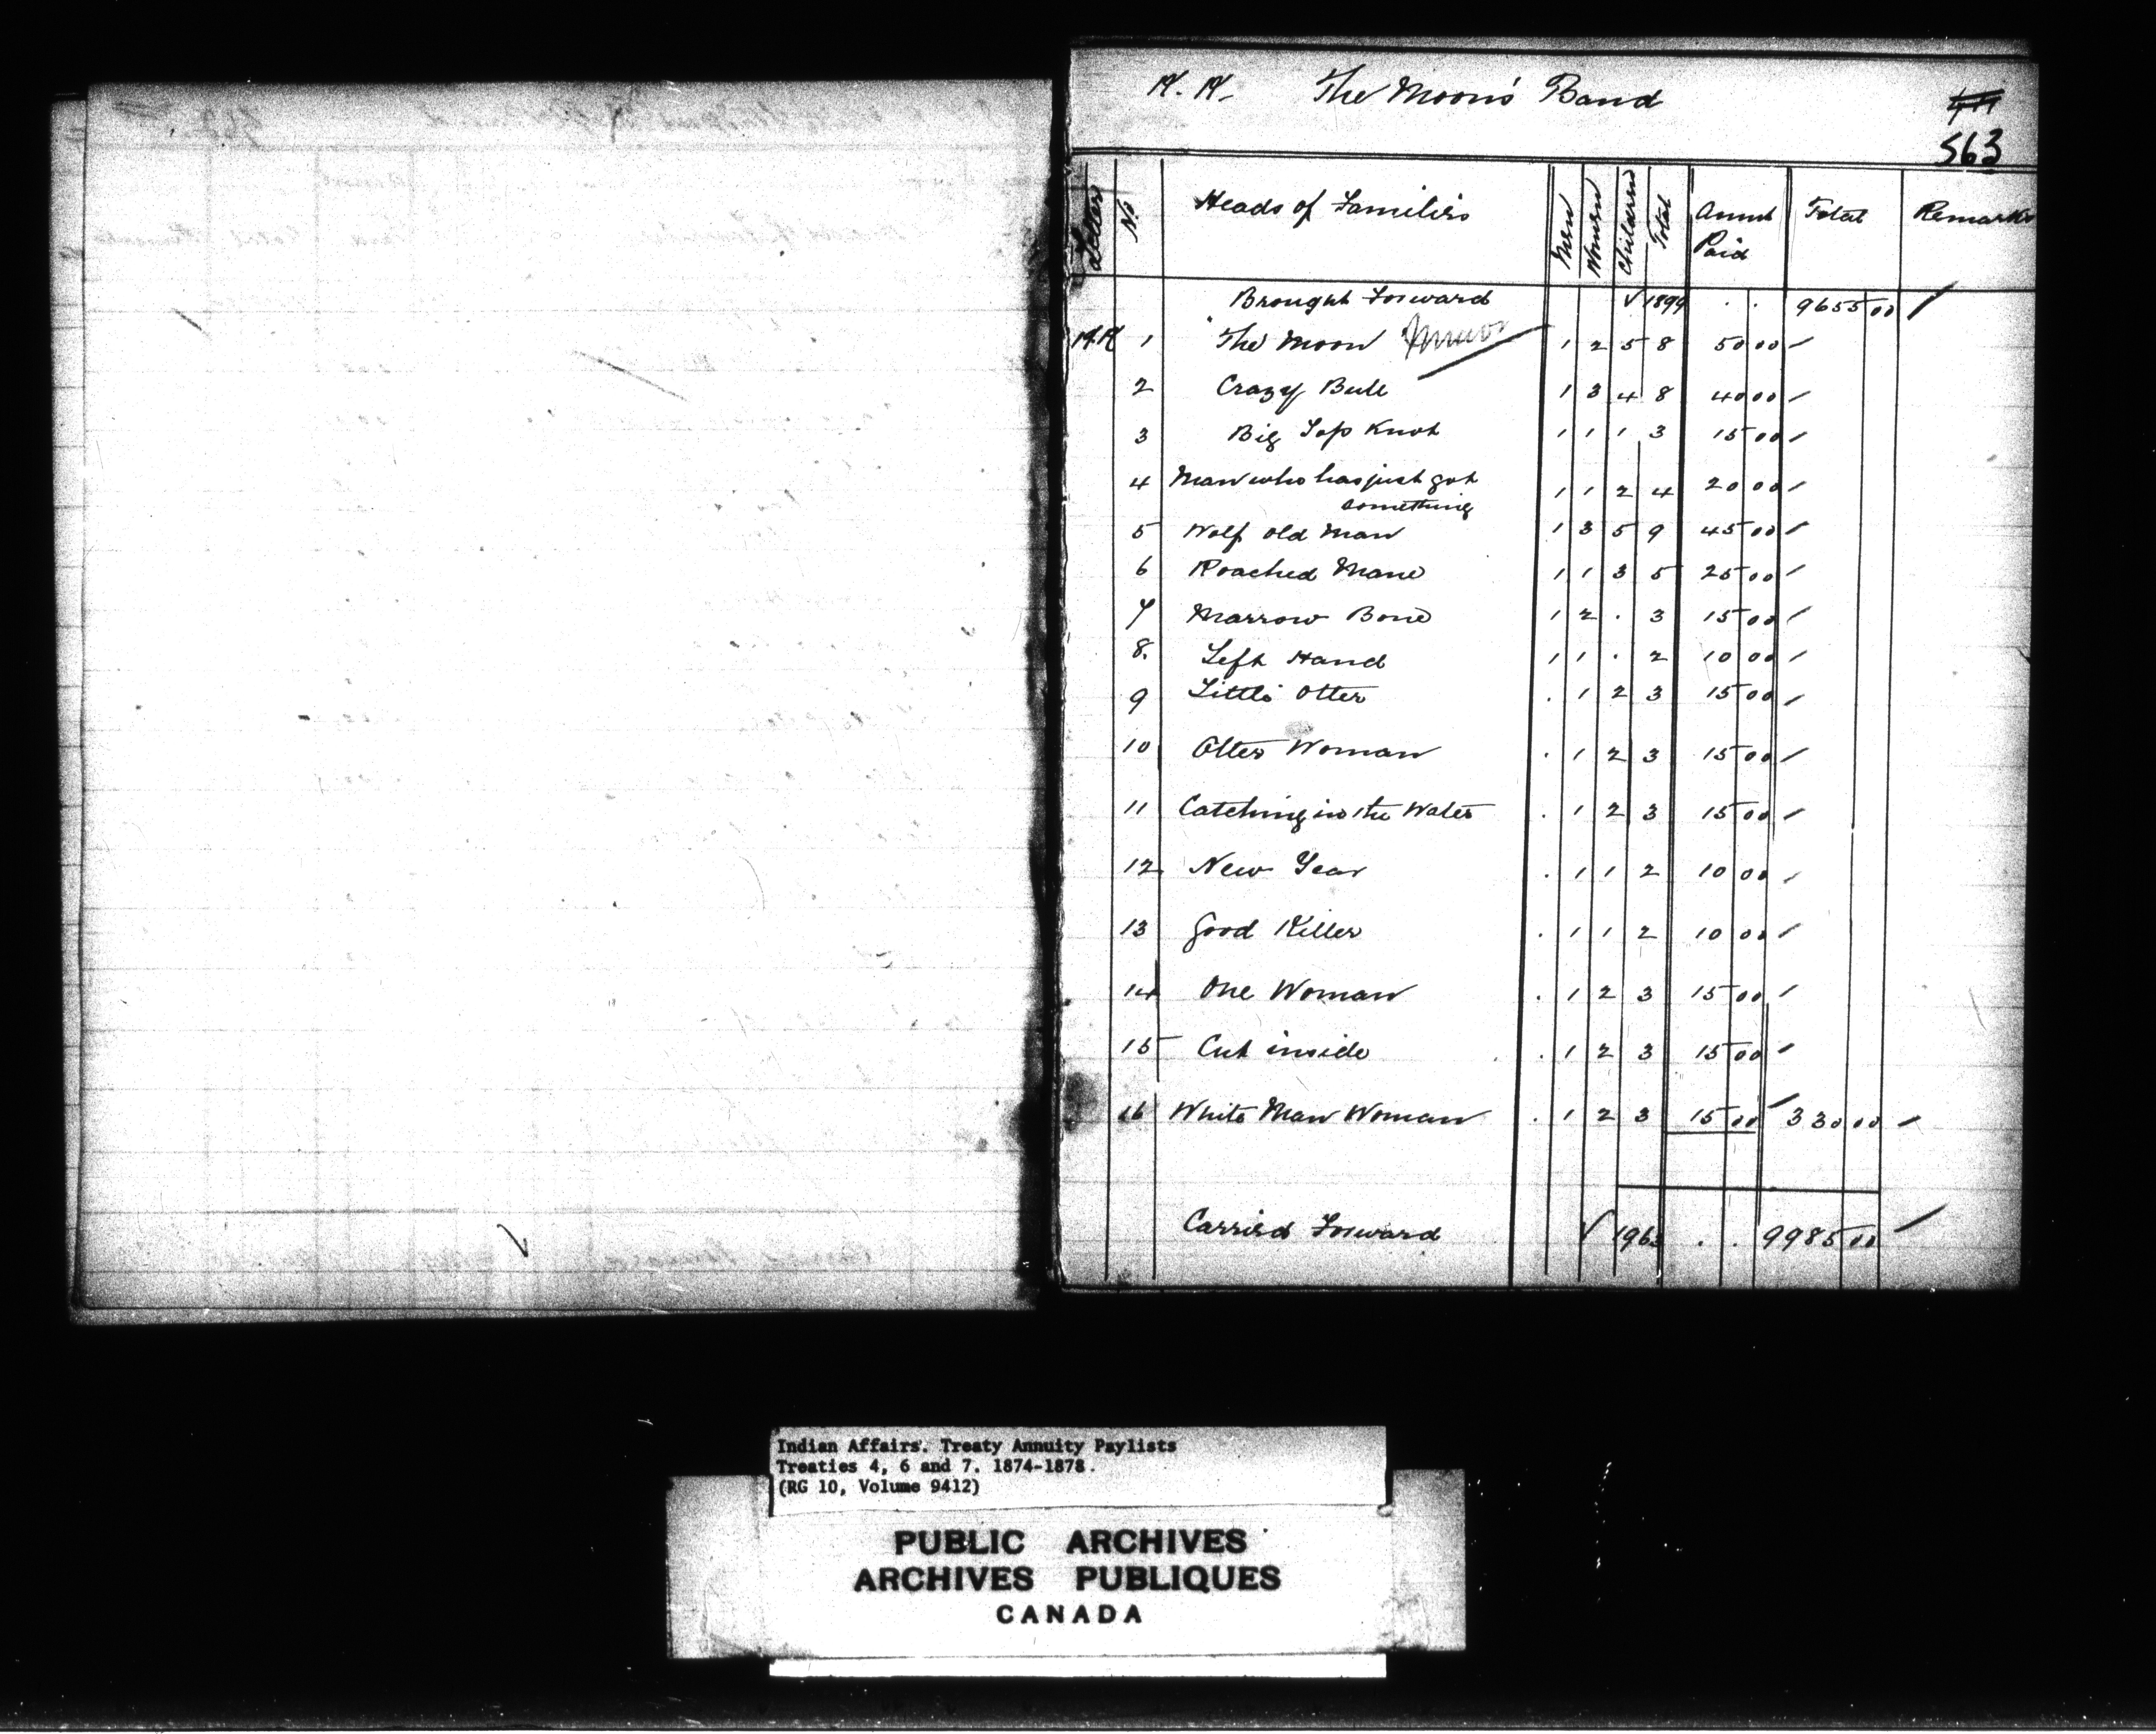 The Moon's Band
563
Letter No. Heads of Families Men Women Children Total Amnt Paid Total Remarks
Brought Forward √ 1899 . . 9655 00 /
1 The Moon Minor 1 2 5 8 50 00 /
2 Crazy Bull 1 3 4 8 40 00 /
3 Big Top Knot 1 1 1 3 15 00 /
4 Man who has just got
something 1 1 2 4 20 00 /
5 Wolf old Man 1 3 5 9 45 00 /
6 Roached Mane 1 1 3 5 25 00 /
7 Marrow Bone 1 2 . 3 15 00 /
8. Left Hand 1 1 . 2 10 00 /
9 Little Otter . 1 2 3 15 00 /
10 Otter Woman . 1 2 3 15 00 /
11 Catching in the Water . 1 2 3 15 00 /
12 New Year . 1 1 2 10 00 /
13 Good Killer . 1 1 2 10 00 /
14 One Woman . 1 2 3 15 00 /
15 Cut inside . 1 2 3 15 00 /
16 White Man Woman . 1 2 3 15 00 / 330 00 /
Carried Forward √ 1963 . . 9985 00 /
Indian Affairs. Treaty Annuity Paylists
Treaties 4, 6 and 7. 1874-1878.
(RG 10, Volume 9412)
PUBLIC ARCHIVES
ARCHIVES PUBLIQUES
CANADA